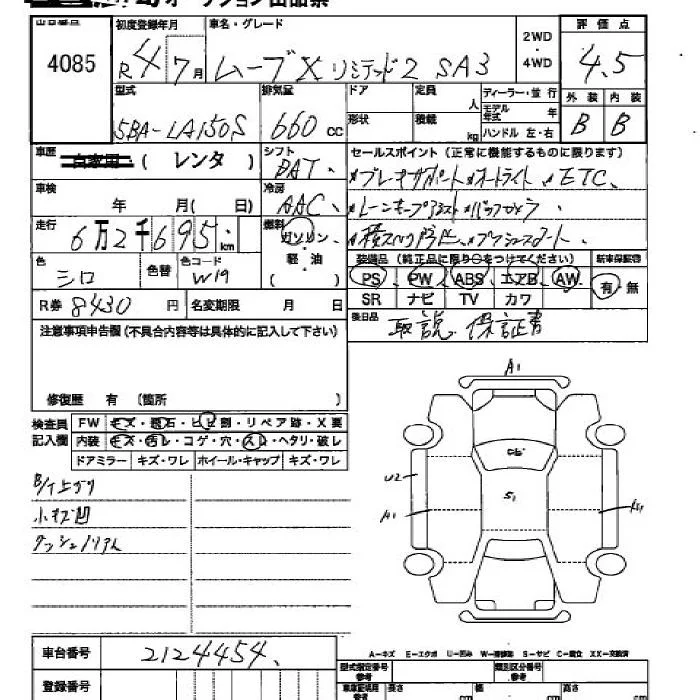 オークション出品票
出品番号 初度登録年月 車名・グレード 2WD・4WD 評価点
4085 R4 7月 ムーブX リミテッド2 SA3 4.5
型式 排気量 ドア 定員 人 ディーラー・並行 外装 内装
5BA-LA150S 660 cc 形状 積載 kg モデル年式 年 ハンドル 左・右 B B
車歴 自家用 ( レンタ ) シフト BAT セールスポイント(正常に機能するものに限ります)
ブレーキサポート オートライト ETC
車検 年 月( 日) 冷房 AAC レーンキープアシスト バックカメラ
走行 6万2千695km 燃料 ガソリン・軽油 ( ) 横スベリ防止
色 シロ 色替 色コード W19
装備品(純正品に限り○をつけてください) 新車保証書
PS PW ABS エアB AW 有・無
SR ナビ TV カワ
R券 8430 円 名変期限 月 日
後日品 取説 保証書
注意事項申告欄(不具合内容等は具体的に記入して下さい)
修復歴 有 (箇所 )
検査員記入欄 FW キズ・飛石・ヒビ割・リペア跡・X要
内装 キズ・汚レ・コゲ・穴・スレ・ヘタリ・破レ
ドアミラー キズ・ワレ ホイール・キャップ キズ・ワレ
小キズ凹
A1
U2
S1
A1
A-キズ E-エクボ U-凹み W-補修跡 S-サビ C-腐食 XX-交換済
車台番号 2124454
登録番号
型式指定番号 参考 類別区分番号 参考
車庫証明用 参考 長さ cm 幅 cm 高さ cm